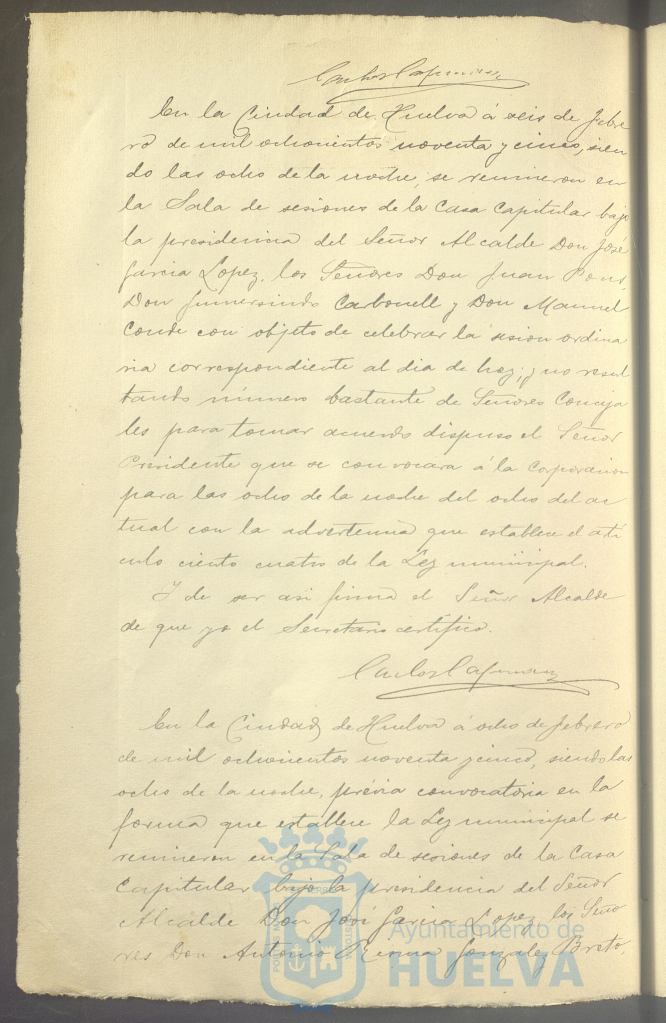 En la Ciudad de Huelva á seis de Febre
ro de mil ochocientos noventa y cinco, sien
do las ocho de la noche, se reunieron en
la Sala de sesiones de la Casa Capitular bajo
la presidencia del Señor Alcalde Don José
Garcia Lopez, los Señores Don Juan Pons,
Don Gumersindo Carbonell y Don Manuel
Conde con objeto de celebrar la sesion ordina
ria correspondiente al dia de hoy; y no resul
tando número bastante de Señores Conceja
les para tomar acuerdo dispuso el Señor
Presidente que se convocara á la Corporacion
para las ocho de la noche del ocho del ac
tual con la advertencia que establece el artí
culo ciento cuatro de la Ley municipal.
Y de ser asi firma el Señor Alcalde
de que yo el Secretario certifico.
En la Ciudad de Huelva á ocho de Febrero
de mil ochocientos noventa y cinco, siendo las
ocho de la noche, prévia convocatoria en la
forma que establece la Ley municipal se
reunieron en la Sala de sesiones de la Casa
Capitular bajo la presidencia del Señor
Alcalde Don José Garcia Lopez, los Seño
res Don Antonio Gonzalez Breto,
Ayuntamiento de
HUELVA